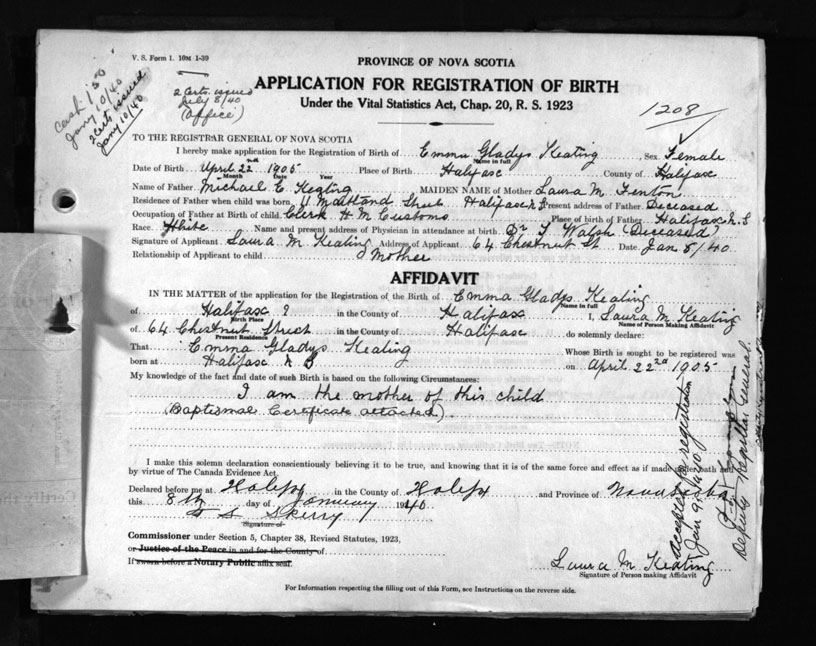 V. S. Form 1. 10M 1-39
Cash 1.50
Jany 10/40
2 Certs issued
Jany 10/40
2 Certs. issued
July 8/40
(Office)
PROVINCE OF NOVA SCOTIA
APPLICATION FOR REGISTRATION OF BIRTH
Under the Vital Statistics Act, Chap. 20, R. S. 1923
1208
TO THE REGISTRAR GENERAL OF NOVA SCOTIA
I hereby make application for the Registration of Birth of Emma Gladys Keating Sex Female
Name in full
Date of Birth April 22nd 1905 Place of Birth Halifax County of Halifax
Month Date Year
Name of Father Michael C Keating MAIDEN NAME of Mother Laura M Fenton
Residence of Father when child was born Maitland Street Halifax N S Present address of Father Deceased
Occupation of Father at Birth of child Clerk H M Customs Place of birth of Father Halifax N. S
Race. White Name and present address of Physician in attendance at birth Dr T Walsh (Deceased)
Signature of Applicant Laura M. Keating Address of Applicant 64 Chestnut St Date Jan 8/40
Relationship of Applicant to child Mother
AFFIDAVIT
IN THE MATTER of the application for the Registration of the Birth of Emma Gladys Keating
Name in full
of Halifax in the County of Halifax I, Laura M Keating
Birth Place Name of Person Making Affidavit
of 64 Chestnut Street in the County of Halifax do solemnly declare:
Present Residence
That Emma Gladys Keating Whose Birth is sought to be registered was
born at Halifax N S on April 22nd 1905
My knowledge of the fact and date of such Birth is based on the following Circumstances:
I am the mother of this child
(Baptismal Certificate attached).
I make this solemn declaration conscientiously believing it to be true, and knowing that it is of the same force and effect as if made under oath and
by virtue of The Canada Evidence Act.
Declared before me at Halifx in the County of Halifx and Province of Nova Scotia
this 8th day of January 1940
Skerry
Signature of
Commissioner under Section 5, Chapter 38, Revised Statutes, 1923,
or Justice of the Peace in and for the County of
If sworn before a Notary Public affix seal.
Laura M. Keating
Signature of Person making Affidavit
For Information respecting the filling out of this Form, see Instructions on the reverse side.
Accepted for registration
Jan 9, 1940
Deputy Registrar General.